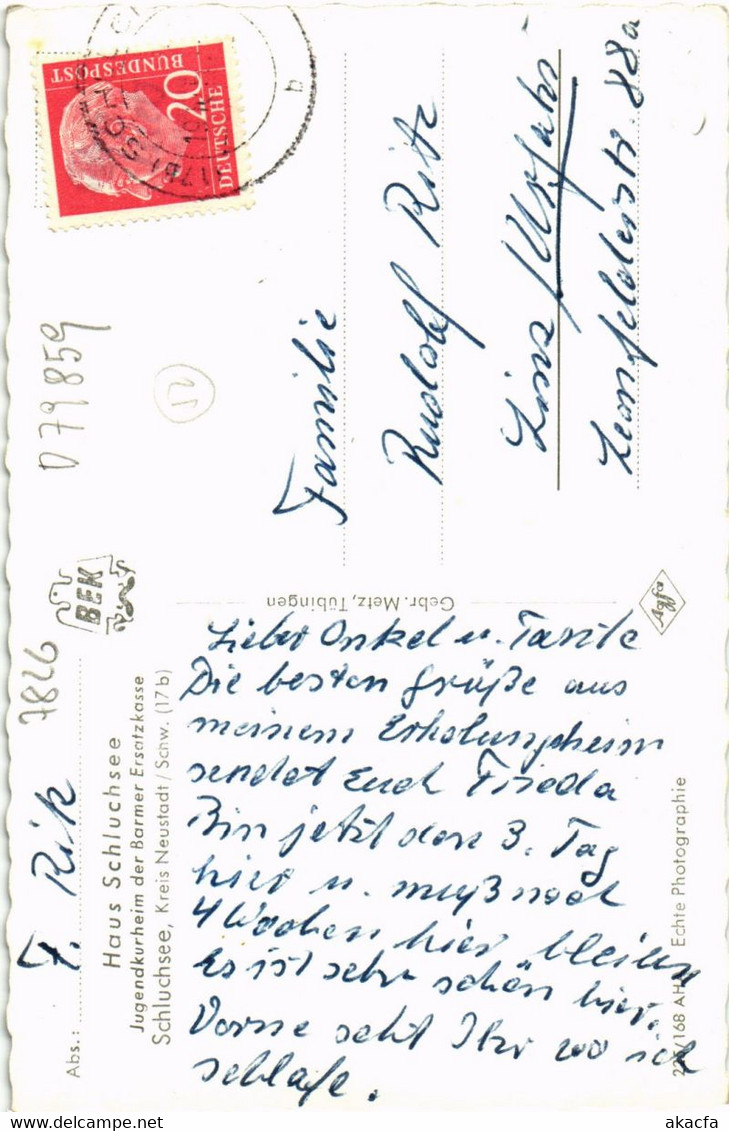 Abs.: F. Rik
7826
Haus Schluchsee
Jugendkurheim der Barmer Ersatzkasse
Schluchsee, Kreis Neustadt / Schw. (17 b)
BEK
D79859
12
DEUTSCHE
BUNDESPOST
20
Lieber Onkel u. Tante
Die besten Grüße aus
meinem Erholungsheim
sendet Euch Frieda
Bin jetzt den 3. Tag
hier u. muß noch
4 Wochen hier bleiben
Es ist sehr schön hier.
Vorne seht Ihr wo ich
schlafe.
Gebr. Metz, Tübingen
Familie
Rudolf Ritz
Linz / Urfahr
Leonfeldnerstr. 88a
Agfa
Echte Photographie
akacfa
akacfa.com